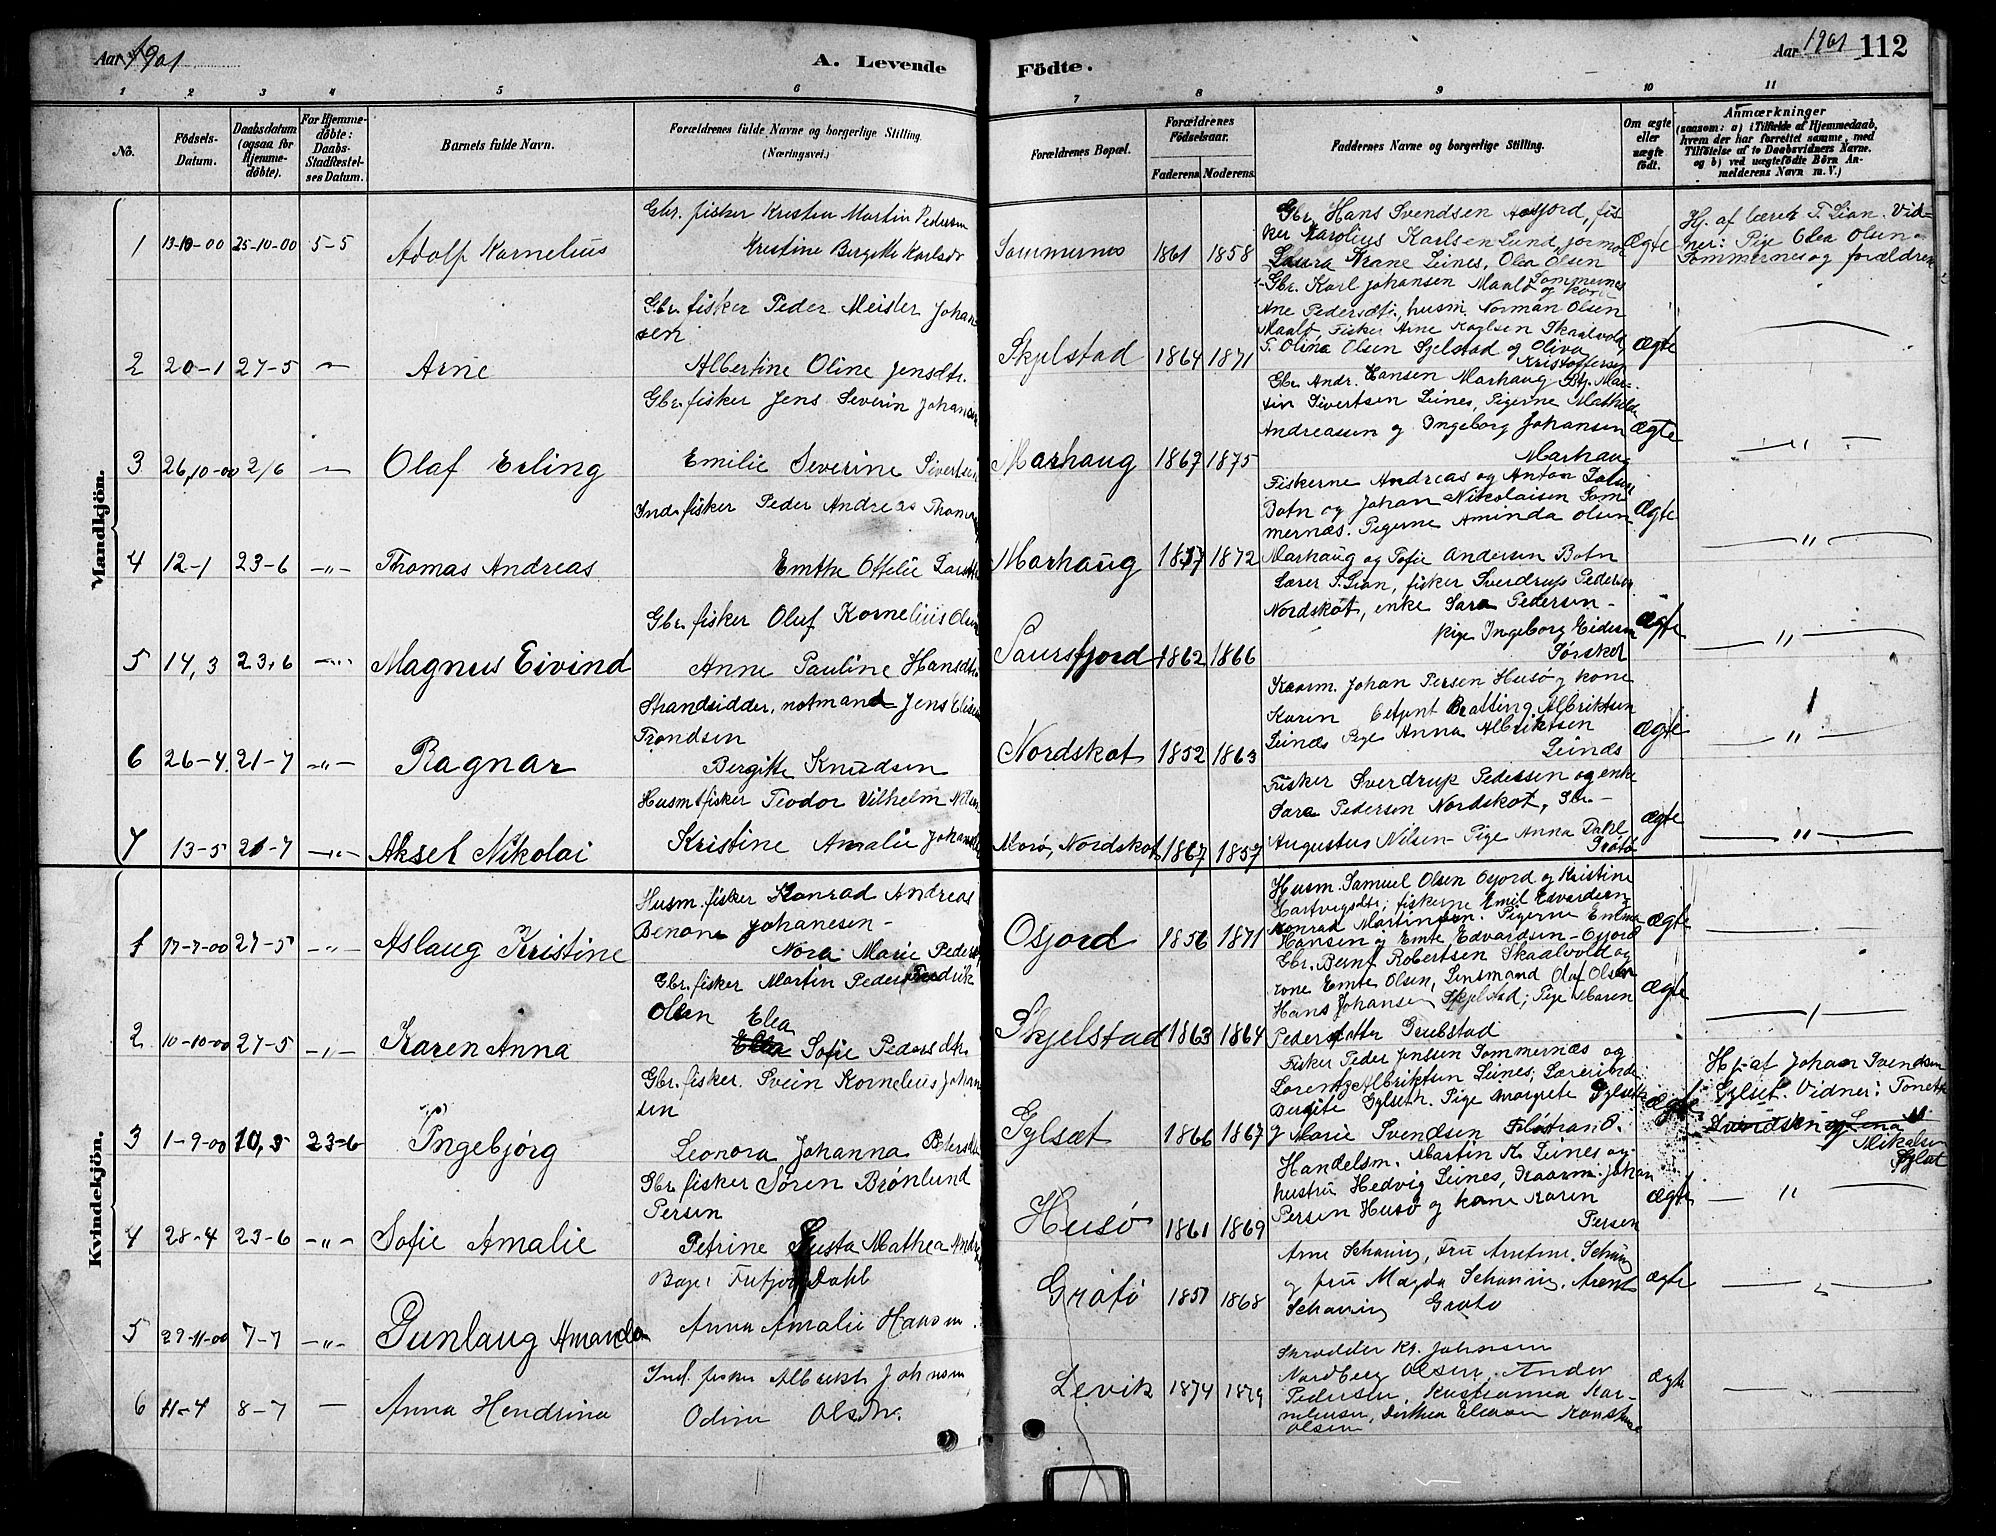 Aar 1901
A. Levende
Födte.
Aar 1901 112
1 2 3 4 5 6 7 8 9 10 11
No.
Födsels-Datum.
Daabsdatum (ogsaa for Hjemme-döbte).
For Hjemme-döbte: Daabs-Stadfæstel-ses Datum.
Barnets fulde Navn.
Forældrenes fulde Navne og borgerlige Stilling. (Næringsvei.)
Forældrenes Bopæl.
Forældrenes Födselsaar.
Faderens Moderens
Faddernes Navne og borgerlige Stilling.
Om ægte eller uægte födt.
Anmærkninger
(saasom: a) i Tilfælde af Hjemmedaab,
hvem der har forrettet samme, med
Tilföielse af to Daabsvidners Navne.
og b) ved uægtefödte Börn An-
melderens Navn m. V.)
Mandkjön.
1 13-10-00 25-10-00 5-5 Adolf Kornelius
Gbr. fisker Kristen Martin Pedersen
Kristine Bergitte Karlsdr
Sommernes 1861 1858
Gbr. Hans Svendsen Aasfjord, fis-
ker Karolius Karlsen Lund, jormor
Laura Krane Leines, Olea Olsen
Sommernes
Ægte
Hj. af lærer T. Lian. Vid-
ner: Pige Olea Olsen
Sommernes og forældren
2 20-1 27-5 Arne
Gbr. fisker Peder Meisler Johan-
sen
Albertine Oline Jensdtr.
Skjelstad 1864 1871
Gbr. Karl Johansen Maalø og kone
Ane Pedersdtr, husm. Norman Olsen
Maalø. Fisker Arne Karlsen Skaalvold
P. Olina Olsen Sjelstad og Oliva
Kristoffersen
Ægte
3 26,10-00 2/6 Olaf Erling
Gbr. fisker Jens Severin Johansen
Emilie Severine Sivertsen
Marhaug 1867 1875
Gbr. Andr. Hansen Marhaug Btj. Mar-
tin Sivertsen Leines, Pigerne Mathilde
Andreassen og Ingeborg Johansen
Marhaug
Ægte "
4 12-1 23-6 -"- Thomas Andreas
Inds. fisker Peder Andreas Thom
Emthe Ottilie Larsdtr
Marhaug 1872
Fiskerne Andreas og Anton
Botn og Johan Nikolaisen Som
mernæs. Pigerne Aminda Olsen
Marhaug og Sofie Andersen Botn
Ægte "
5 14,3 23,6 -"- Magnus Eivind
Gbr. fisker Oluf Kornelius Olsen
Anne Pauline Hansdtr
Saursfjord 1862 1866
Lærer T. Lian, fisker Sverdrup Pedersen
Nordskot, enke Sara Pedersen -
pige Ingeborg
Sørskot
Ægte "
6 26-4 21-7 -"- Ragnar
Strandsidder, notmand Jens
Trondsen
Bergitte Knudsen
Nordskot 1852 1863
Kaarm. Johan Persen Husø og kone
Karen Bratting Albriktsen
Leines Pige Anna Albriktsen
Leines
Ægte "
7 13-5 21-7 -"- Aksel Nikolai
Husm. fisker Teodor Vilhelm Nilsen
Kristine Amalie Johans
Morø, Nordskot 1867 1857
Fisker Sverdrup Pedersen og enke
Sara Pedersen Nordskot, Gbr.-
Augustus Nilsen - Pige Anna Dahl
Grøtø
Ægte "
Kvindekjön.
1 17-7-00 27-5 -"- Aslaug Kristine
Husm. fisker Konrad Andreas
Benoni Johanesen -
Nora Marie Peders
Osjord 1856 1871
Husm. Samuel Olsen Osjord og Kristine
Hartvigsdtr; fiskerne Emil Edvardsen
Konrad Martinsen. Pigerne
Hansen og Emte Edvardsen - Osjord
Ægte
2 10-10-00 27-5 -"- Karen Anna
Gbr. fisker Martin Peder Fredrik
Olsen Elea
Sofie Pedersdtr
Skjelstad 1863 1864
Gbr. Bernt Robertsen Skaalvold og
kone Emte Olsen, Lensmand Olaf Olsen
Hans Johansen Skjelstad; Pige Maren
Pedersdatter Grubstad
Ægte
3 1-9-00 10,5 23-6 Ingebjørg
Gbr. fisker. Svein Kornelius Johan
sen
Leonora Johanna Petersdtr
Gylsæt 1866 1867
Fisker Peder Jensen Sommernæs og
Lorents Albriktsen Leines; Lærerinde
Bergite Gylseth. Pige Margrete Gylseth
og Marie Svendsen
Ægte
Hj. af Johan Svendsen
Gylset. Vidner: Tonette
Svendsen og Lena
Mikals
Gylset
4 28-4 23-6 -"- Sofie Amalie
Gbr. fisker Søren Brønlund
Persen
Petrine Gusta Mathea Andr
Husø 1861 1869
Handelsm. Martin K. Leines og
hustru Hedvig Leines, Kaarm. Johan
Persen Husø og kone Karen
Persen
Ægte "
5 27-11-00 7-7 -"- Gunlaug Amanda
Dahl
Anna Amalie Hansen
Grøtø 1868
Arne Schøning, Fru Schøning
og fru Magda Schøning, Arent
Schøning Grøtø
Ægte
6 11-4 8-7 Anna Hendrina
Ind. fisker Albrekt Johnsen
Odine Olsdtr.
Levik 1874 1879
Skrædder Kr. Johnsen
Nordberg Olsen, Ander
Pedersen, Kristianna Kar-
Dirthea
Olsen
Ægte